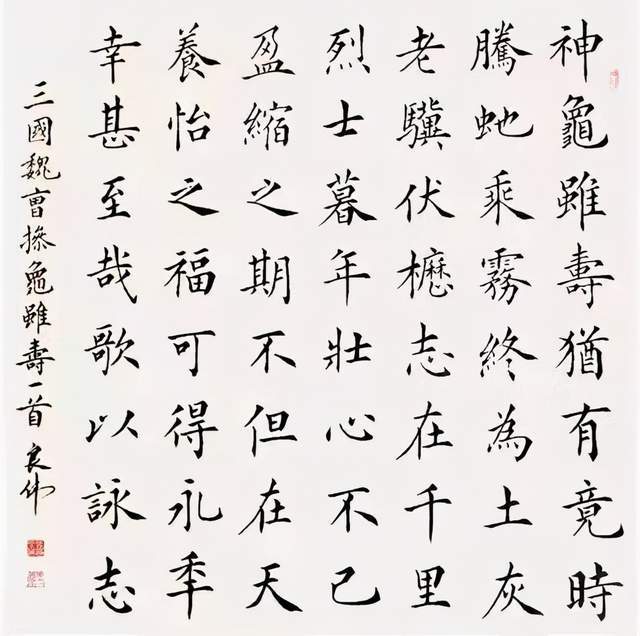 神龜雖壽猶有竟時
騰虵乘霧終為土灰
老驥伏櫪志在千里
烈士暮年壯心不已
盈縮之期不但在天
養怡之福可得永秊
幸甚至哉歌以詠志
三國魏曹操龜雖壽一首 良伟